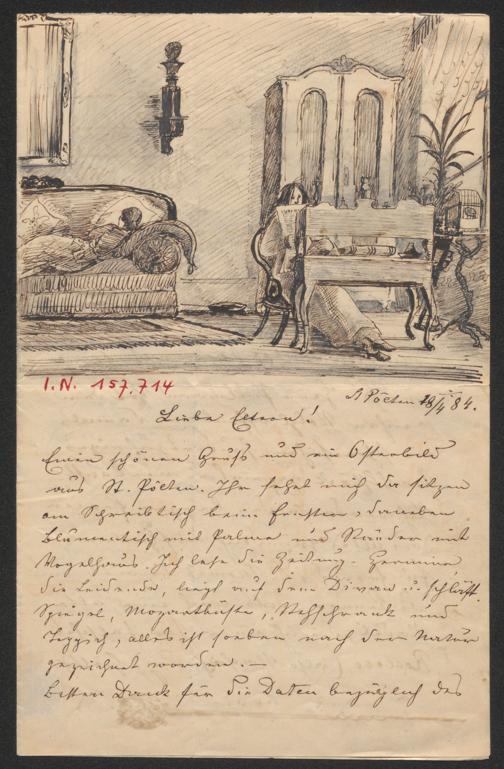 I.N. 157.714
St Pölten 18/4 84.
Liebe Eltern!
Einen schönen Gruß und ein Osterbild
aus St. Pölten. Ihr sehet mich da sitzen
am Schreibtisch beim Fenster, daneben
Blumentisch mit Palme und Ständer mit
Vogelhaus. Ich lese die Zeitung. Hermine,
die Leidende, liegt auf dem Divan u. schläft.
Spiegel, Mozartbüste, Stehschrank und
Teppich, alles ist soeben nach der Natur
gezeichnet worden. —
Besten Dank für die Daten bezüglich des